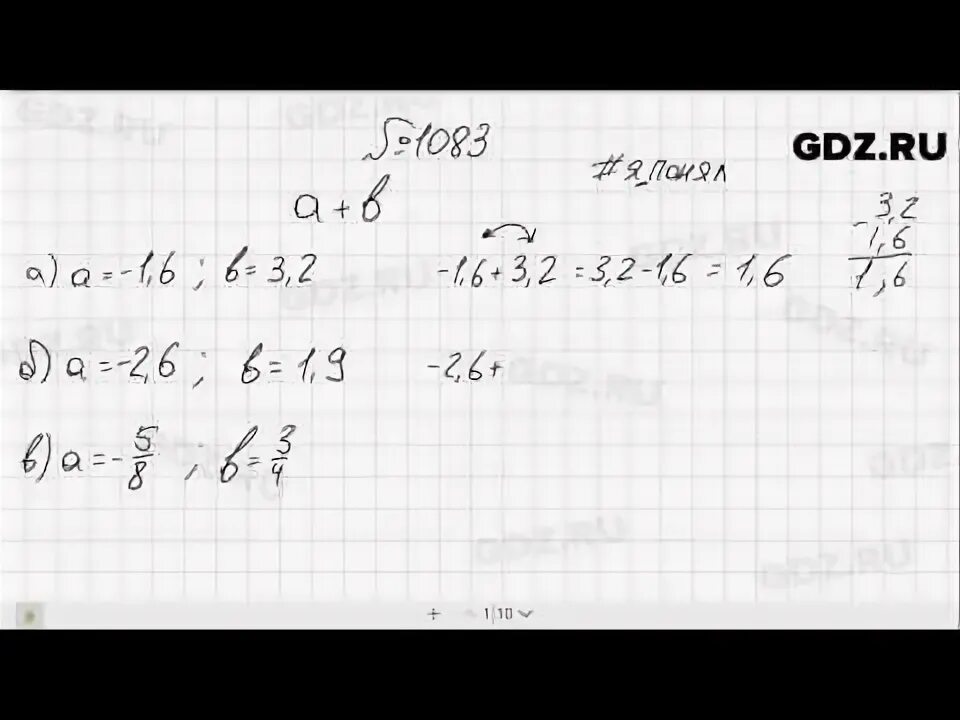 №1083
GDZ.RU
#я_понял
a + b
а) a = -1,6 ; b = 3,2 -1,6 + 3,2 = 3,2 - 1,6 = 1,6
- 3,2
1,6
1,6
б) a = -2,6 ; b = 1,9 -2,6 +
в) a = - 5/8 ; b = 3/4
1/10